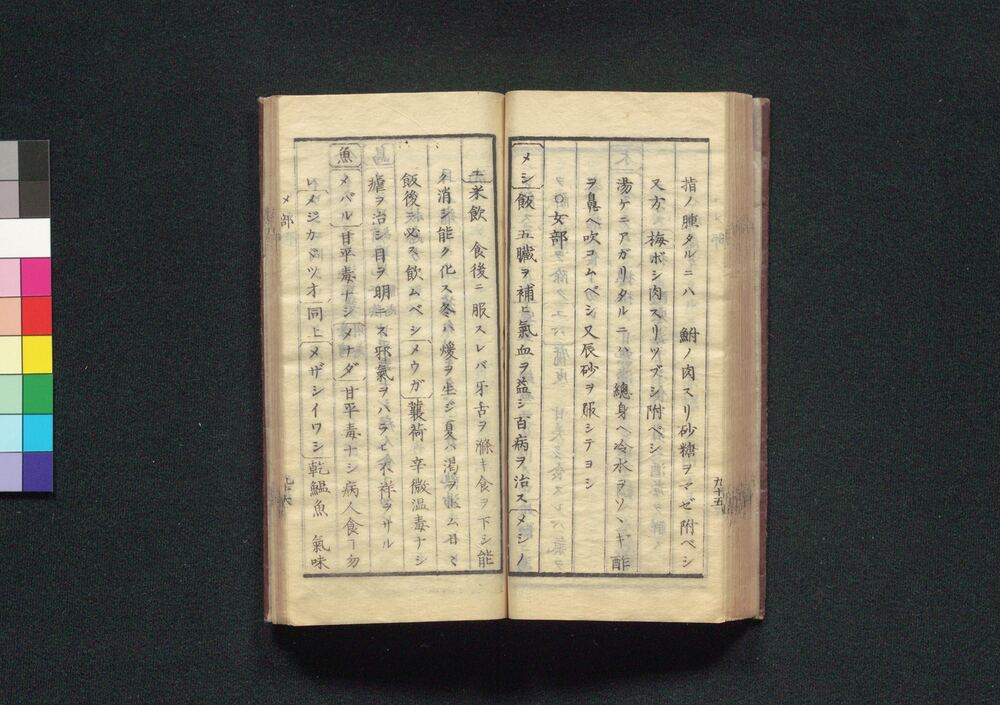 指ノ腫タルニハ 鮒ノ肉スリ砂糖ヲマゼ附ベシ
又方 梅ボシ肉スリツブシ附ベシ
湯ケニアガリタルニハ 總身ヘ冷水ヲソヽギ 酢
ヲ鼻ヘ吹コムベシ又辰砂ヲ服シテヨシ
○女部
メシ 飯 五臓ヲ補ヒ氣血ヲ益シ百病ヲ治ス メシノ
九十五
米飲 食後ニ服スレバ牙舌ヲ滌キ食ヲ下シ能
消シ能ク化ス冬ハ煖ヲ生ジ夏ハ渇ヲ
飯後ニ必ス飲ムベシ メウガ 蘘荷 辛微温毒ナシ
瘧ヲ治シ目ヲ明ニス邪氣ヲハラヒ不祥ヲサル
魚 メバル 甘平毒ナシ メナダ 甘平毒ナシ病人食ヿ勿
レ メジカガツオ 同上 メザシイワシ 乾鰮魚 氣味
メ部
九十六